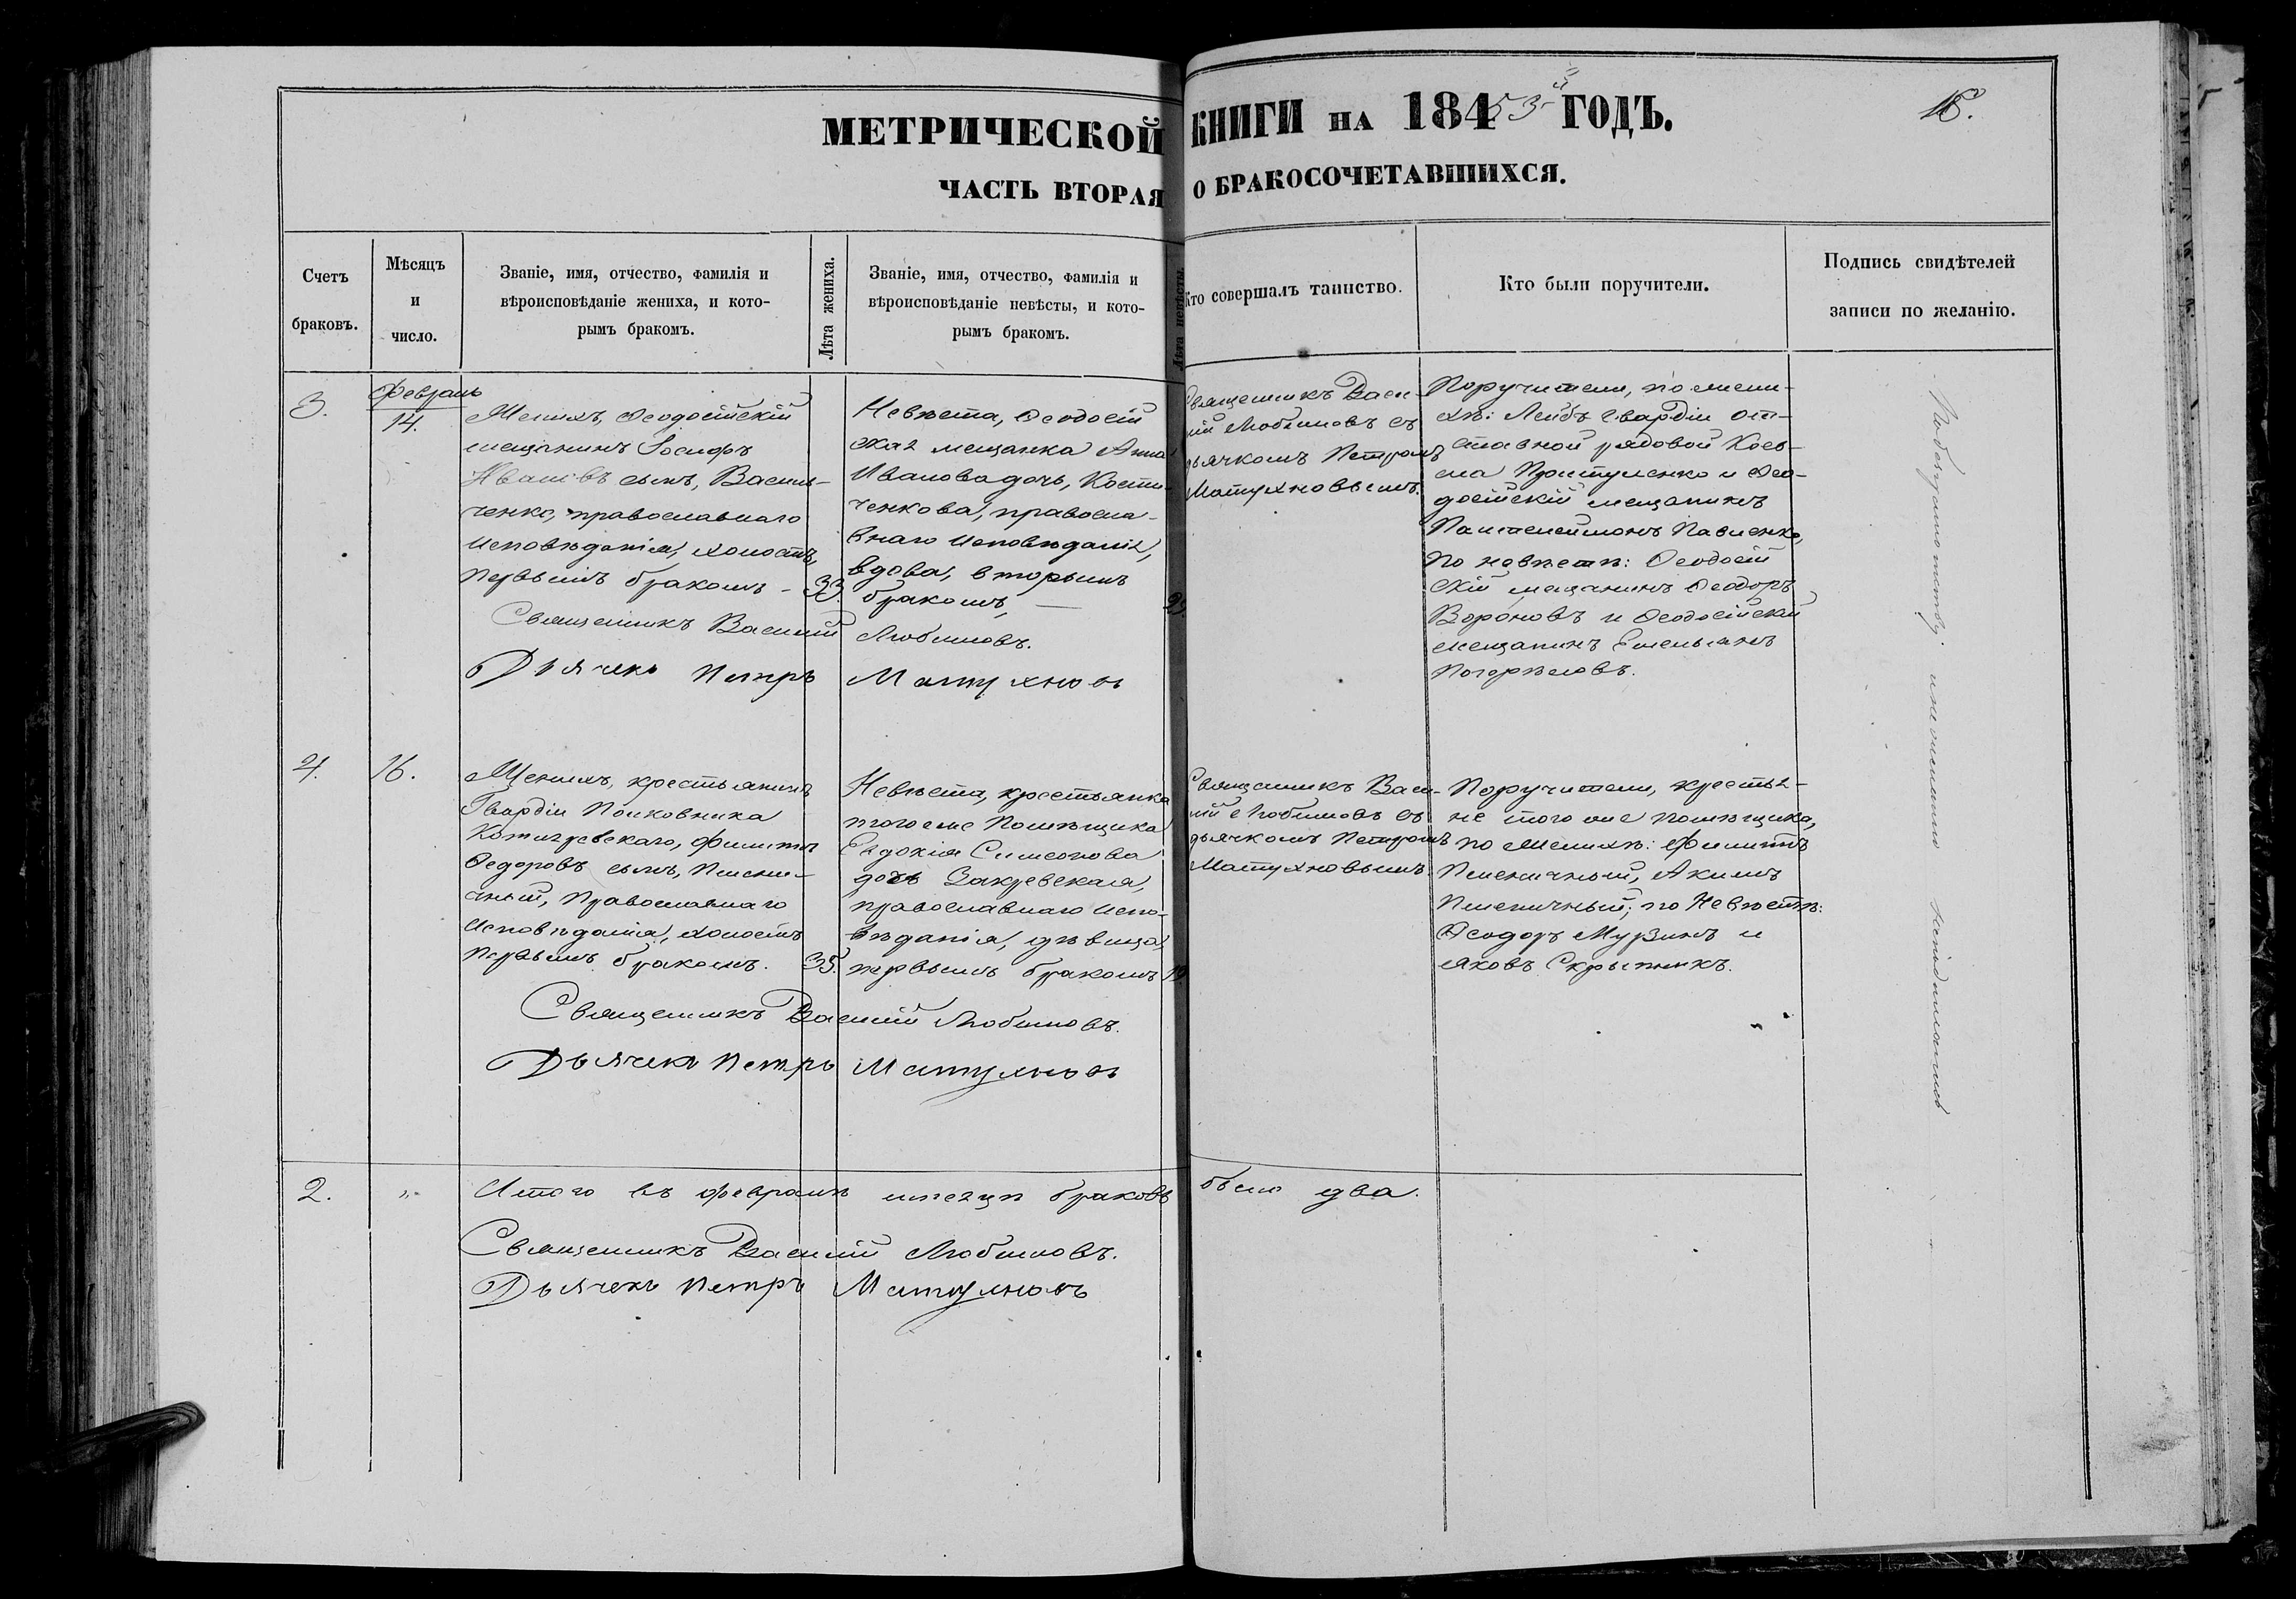 МЕТРИЧЕСКОЙ КНИГИ НА 18453й ГОДЪ.
18.
ЧАСТЬ ВТОРАЯ О БРАКОСОЧЕТАВШИХСЯ.
Счетъ
браковъ.
Мѣсяцъ
и
число.
Званіе, имя, отчество, фамилія и
вѣроисповѣданіе жениха, и кото-
рымъ бракомъ.
Лѣта жениха.
Званіе, имя, отчество, фамилія и
вѣроисповѣданіе невѣсты, и кото-
рымъ бракомъ.
Лѣта невѣсты.
Кто совершалъ таинство.
Кто были поручители.
Подпись свидѣтелей
записи по желанію.
3.
Февраль
14.
Женихъ, Ѳеодосійскій
мещанинъ Іосифъ
Ивановъ сынъ, Василь-
ченко, православнаго
исповѣданія, холостъ,
первымъ бракомъ -
33.
Невѣста, Ѳеодосій
ская мещанка Анна
Иванова дочь, Кости-
ченкова, правосла-
внаго исповѣданія,
вдова, вторымъ
бракомъ, —
Священникъ Васи-
лій Любимовъ съ
дьячкомъ Петромъ
Матухновымъ.
Поручители, по жени-
хѣ: Лейбъ Гвардіи от-
ставной рядовой Кось-
ма и Ѳео-
досійскій мещанинъ
Пантелеймонъ Павленко,
по невѣстѣ: Ѳеодосій
скій мещанинъ Ѳеодоръ
Вороновъ и Ѳеодосійскій
мещанинъ Емельянъ
Погорѣловъ.
Священникъ Василій Любимовъ.
Дьячекъ Петръ Матухновъ
4.
16.
Женихъ, крестьянинъ
Гвардіи Полковника
Котигревскаго, Филиппъ
Ѳедоровъ сынъ, Пшени-
чный, православнаго
исповѣданія, холостъ
первымъ бракомъ.
35.
Невѣста, крестьянка
того же Помѣщика
Евдокія Симеонова
дочь Закревская,
православнаго испо-
вѣданія, дѣвица,
первымъ бракомъ
19.
Священникъ Васи-
лій Любимовъ съ
дьячкомъ Петромъ
Матухновымъ.
Поручители, крестья-
не того же помѣщика,
по женихѣ: Филиппъ
Пшеничный, Акимъ
Пшеничный; по Невѣстѣ:
Ѳеодоръ Мурзинъ и
Яковъ Скрыпникъ.
Священникъ Василій Любимовъ.
Дьячекъ Петръ Матухновъ
2.
"
Итого въ февралѣ мѣсяцѣ браковъ было два.
Священникъ Василій Любимовъ.
Дьячекъ Петръ Матухновъ